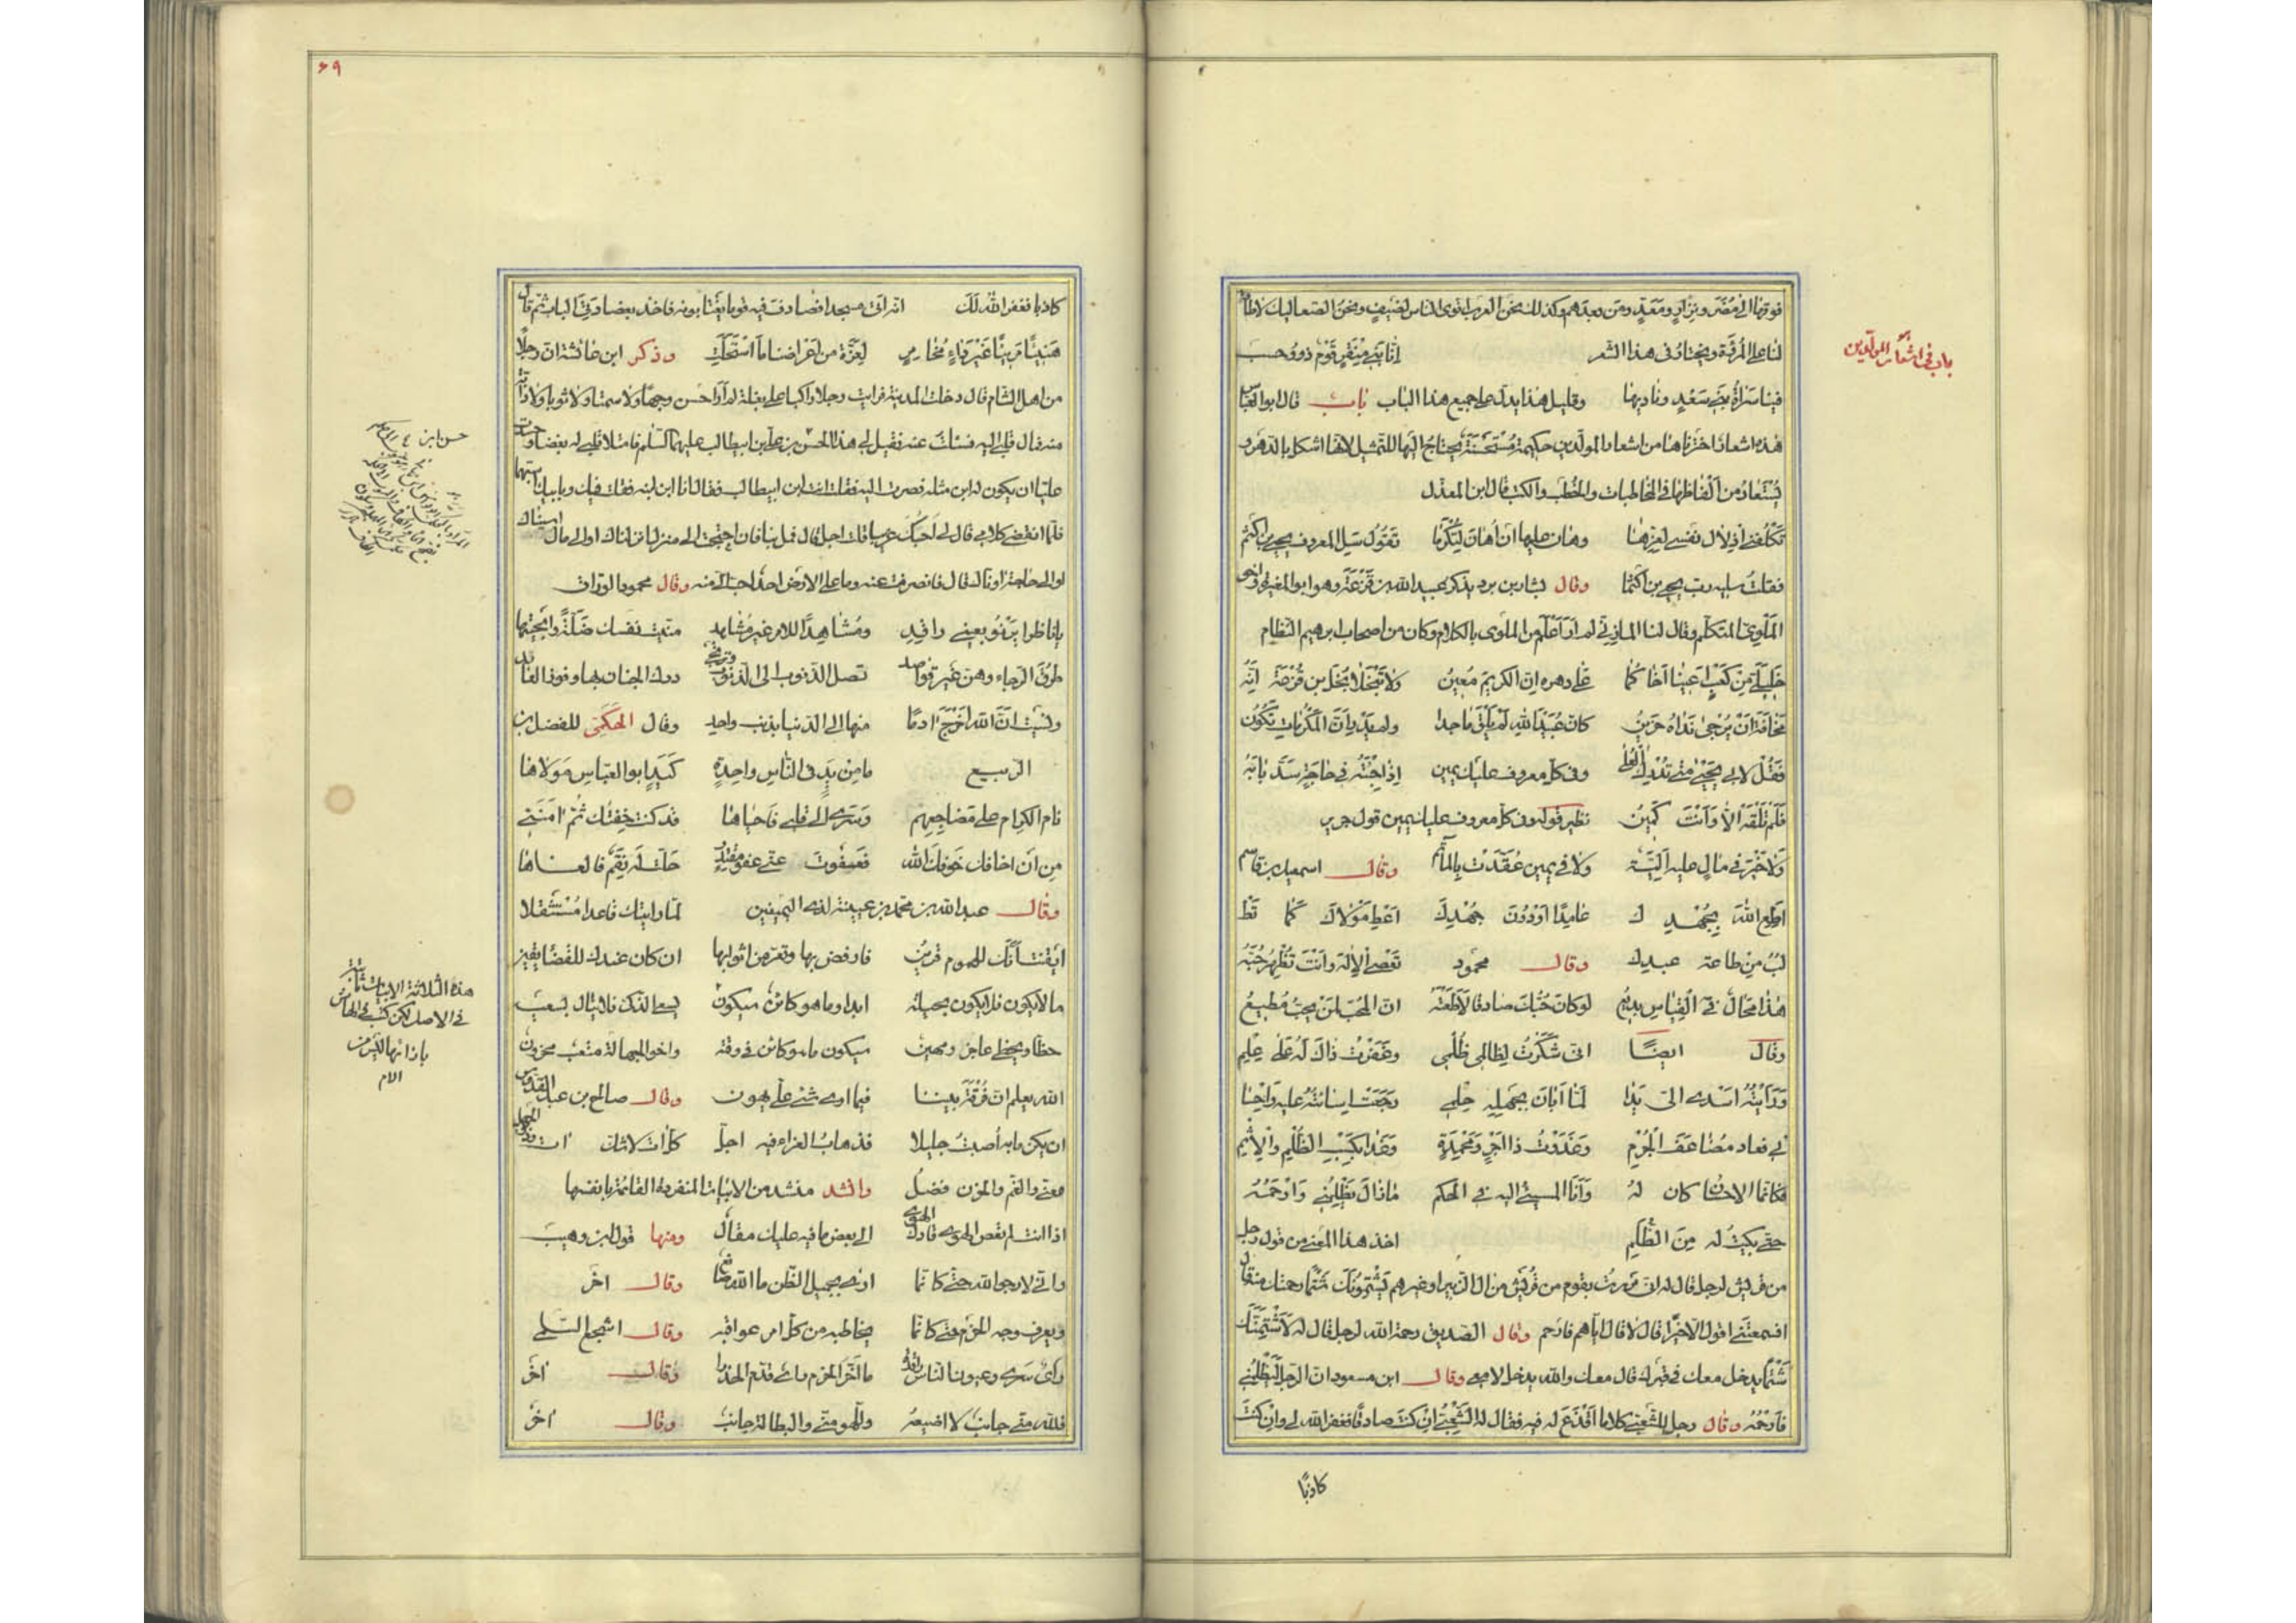 باب فى اشعار المولدين
فوقها الى مضر ونزار ومعد ومن بعدهم وكذلك نحن العرب اقوى الناس لضيف ونحن الصعاليك
لنا على المرقبة ويختار فى هذا الشعر اِنّا بَنِي مِنْقَرٍ قَوْمٌ ذوو حسب
فينا سَراةُ بَنِي سَعْدٍ وناديها وقليل هذا يدلّ على جميع هذا الباب باب قال ابو العباس
هذه اشعار اخترناها من اشعار المولّدين حكيمة مُسْتَحْسَنَةٌ يحتاج اليها للتمثيل لانها اشكل بالدهر و
يُسْتَعارُ من اَلْفاظها فى المخاطبات والخُطَبِ والكتب قال ابن المعذّل
تُكَلِّفُنى اِذْلالَ نفسى لِعِزِّها وهان عليها ان اُهانَ لِتُكْرَما تَقُولُ سَلِ المعروفَ يحيى بن اكثم
فقلتُ سليه ربَّ يحيى بن اكثما وقال بشار بن برد يذكر عبيد الله بن قَزَعَةَ وهو ابو المغيرة اخو
المَلَوِىّ المتكلّم وقال لنا المازنىّ لم اَرَ اَعْلَمَ من الملوى بالكلام وكان من اصحاب ابرهيم النَّظّام
خَلِيلَىَّ مِنْ كَعْبٍ اَعينا اَخا كما على دهره انّ الكريم مُعينُ ولا تَبْخَلا بُخْلَ بنِ قَزْعَةَ اِنَّهُ
مَخافَةَ اَنْ يُرْجى نَداهُ حَزينُ كانّ عُبَيْدَ الله لم يَلْقَ ماجدا ولم يَدْرِ اَنّ المَكْرُماتِ تَكُونُ
فَقُلْ لابى يَحْيى مَتى تُدْرِكُ العُلى وفى كلّ معروف عليك يمين اِذا جِئْتَهُ فى حاجَةٍ سَدَّ بابَهُ
فَلَمْ تَلْقَهُ الّا وَاَنْتَ كَمينُ نظير قوله وفى كلّ معروف عليك يمين قول جرير
وَلا خَيْرَ فى مالٍ عليه اَلِيَّةٌ ولا فى يمين عُقِّدَتْ بِالمآثم وقال اسمعيل بن قاسم
اَطِعِ اللهَ بِجُهْدِ كَ عامِدًا اَوْ دُونَ جُهْدِكَ اَعْطِ مَوْلاكَ كَما تَط
لُبُ مِنْ طاعة عبدك وقال محمود تَعْصى الاِلهَ واَنْتَ تُظْهِرُ حُبَّهُ
هذا مُحالٌ فى القِياسِ بديعُ لو كانَ حُبُّكَ صادقا لَاَطَعْتَهُ انّ المُحِبَّ لِمَنْ يحبّ مُطيعُ
وقال ايضًا انى شَكَرْتُ لِظالِمى ظُلْمِى وغَفَرْتُ ذاكَ لَهُ عَلى عِلْمِ
وَرَاَيْتُهُ اَسْدى الىّ يَدًا لَمّا اَبانَ بِجَهْلِهِ حِلْمى رَجَعَتْ اِسائتُهُ عليه واِحْسا
نى فعاد مُضاعَفَ الجُرْمِ وَغَدَوْتُ ذا اَجْرٍ وَمَحْمَدَةٍ وَغَدا بِكَسْبِ الظُّلْمِ والاِثْمِ
فكانّما الاحسان كان لهُ وَاَنا المسيئ اليه فى الحكم ما زالَ يَظْلِمُنى وَاَرْحَمُهُ
حتى بكيتُ له مِنَ الظُّلْمِ اخذ هذا المعنى من قول رجل
من قريش لرجل قال له انى مررتُ بقوم من قُرَيْش من ال الزبير او غيرهم يَشْتِمُونَكَ شَتْمًا رحمتك منه قال
افسمعتَنى اقول الا خيرًا قال لا قال اياهم فارحم وقال الصّديق رحمة الله لرجل قال له لَاَشْتِمَنَّكَ
شَتْمًا يدخل معك فى قبرك قال معك والله يدخل لا معى وقال ابن مسعود ان الرجل لَيَظْلِمُنى
فَاَرْحَمُهُ وقال رجل للشعبى كلاما اَقْذَعَ له فيه فقال له الشَّعْبِىّ اِنْ كنتَ صادقا فغفر الله لى وان كنتَ
كاذبًا
٦٩
كاذبا فغفر الله لَكَ انه اتى مسجدا فصادف فيه قوما يغتابونه فاخذ بعضادتى الباب ثم قال
هَنِيئًا مَرِيئًا غَيْرَ داءٍ مُخامِرٍ لِعَزَّةَ من اَعْراضنا ما اسْتَحَلَّتِ وذكر ابن عائشة ان رجلًا
من اهل الشام قال دخلت المدينة فرايت رجلا راكبا على بغلة لم ار احسن وجها ولا سمتا ولا ثوبا ولا دابّة
منه فمال قلبى اليه فسئلت عنه فقيل لى هذا الحسن بن على بن ابيطالب عليهما السّلم فامتلا قلبى له بغضا وحسدت
عليّا ان يكون له ابن مثله فصرت اليه فقلت انت ابن ابيطالب فقال انا ابن ابنه فقلت فيك وبابيك اسبهما
فلمّا انقضى كلامى قال لى اَحْسِبُكَ غريبا قلت اجل قال فمل بنا فان احتجت الى منزل انزلناك او الى مال اسيناك
او الى حاجة عاوناك قال فانصرفت عنه وما على الارض احدٌ احبّ الىّ منه وقال محمود الوراق
يا ناظرا يَرْنُو بعينى راقِدٍ ومُشاهِدًا للامر غير مُشاهِدِ منّيتَ نفسك ضَلّةً واَبَحْتَها
طُرُقَ الرّجاءِ وهنّ غَيْر قواصد تصل الذّنوب الى الذّنوب وترتجى درك الجنان بها وفوز العابد
ونَسيتَ انَّ اللهَ اَخْرَجَ ادمًا منها الى الدّنيا بذنب واحِدِ وقال الحَكَمِىّ للفضل بن
الرّبيع ما مِنْ يَدٍ فى النّاس واحِدةٍ كَيَدٍ ابو العبّاس مَوْلاها
نام الكِرام على مَضاجِعِهِم وَسَرى الى نفسى فَاَحْياها قد كنت خِفْتُك ثُمّ امَنَنى
مِن اَن اخافك خَوْفُكَ اللهَ فعَفَوْتَ عنّى عَفْوَ مُقْتَدِرٍ حَلَّت له نِقَمٌ فالغاها
وقال عبد الله بن محمد بن عيينة لذى اليمينين لمّا رايتك قاعدا مُسْتَثْقِلا
اَيْقَنْتُ اَنّك للهموم قرينُ فارفض بها وتعرّ من اثوابها ان كان عندك للقضاء يقين
ما لا يكون فلا يكون بحيلة ابدا وما هو كائنٌ سيكون يسعى الذكىّ فلا ينال بسعيه
حظّا ويحظى عاجز ومهين سيكون ما هو كائن فى وقته واخو الجهالة متعب محزون
الله يعلم انّ فُرْقَةَ بيننا فيما ارى شئ علىّ يهون وقال صالح بن عبد القدوس
ان يكن ما به اُصبتَ جليلا فذهاب العزاء فيه اجلّ كلّ ات لا شكّ ات وذو الجهل
معنّى والغمّ والحزن فضلُ وانشد منشد من الابيات المنفردة القائمة بانفسها
اذا انت لم تعص الهوى قادك الهوى الى بعض ما فيه عليك مقال ومنها قول ابن وهيب
وانّى لارجو الله حتّى كانّما ارى بجميل الظّن ما الله صانع وقال اخر
ويعرف وجه الحزم حتى كانّما يخاطبه من كلّ امر عواقبه وقال اشجع السلمى
راى سرى وعيون الناس راقدة ما اَخّر الحزم راى قدّم الحذرا وقال اخر
فلله منّى جانب لا اضيعه وللهو منّى والبطالة جانب وقال اخر
هذه الثلاثة الابيات ثابتة
فى الاصل لكن كتب فى الهامش
بازائها ليس من
الام